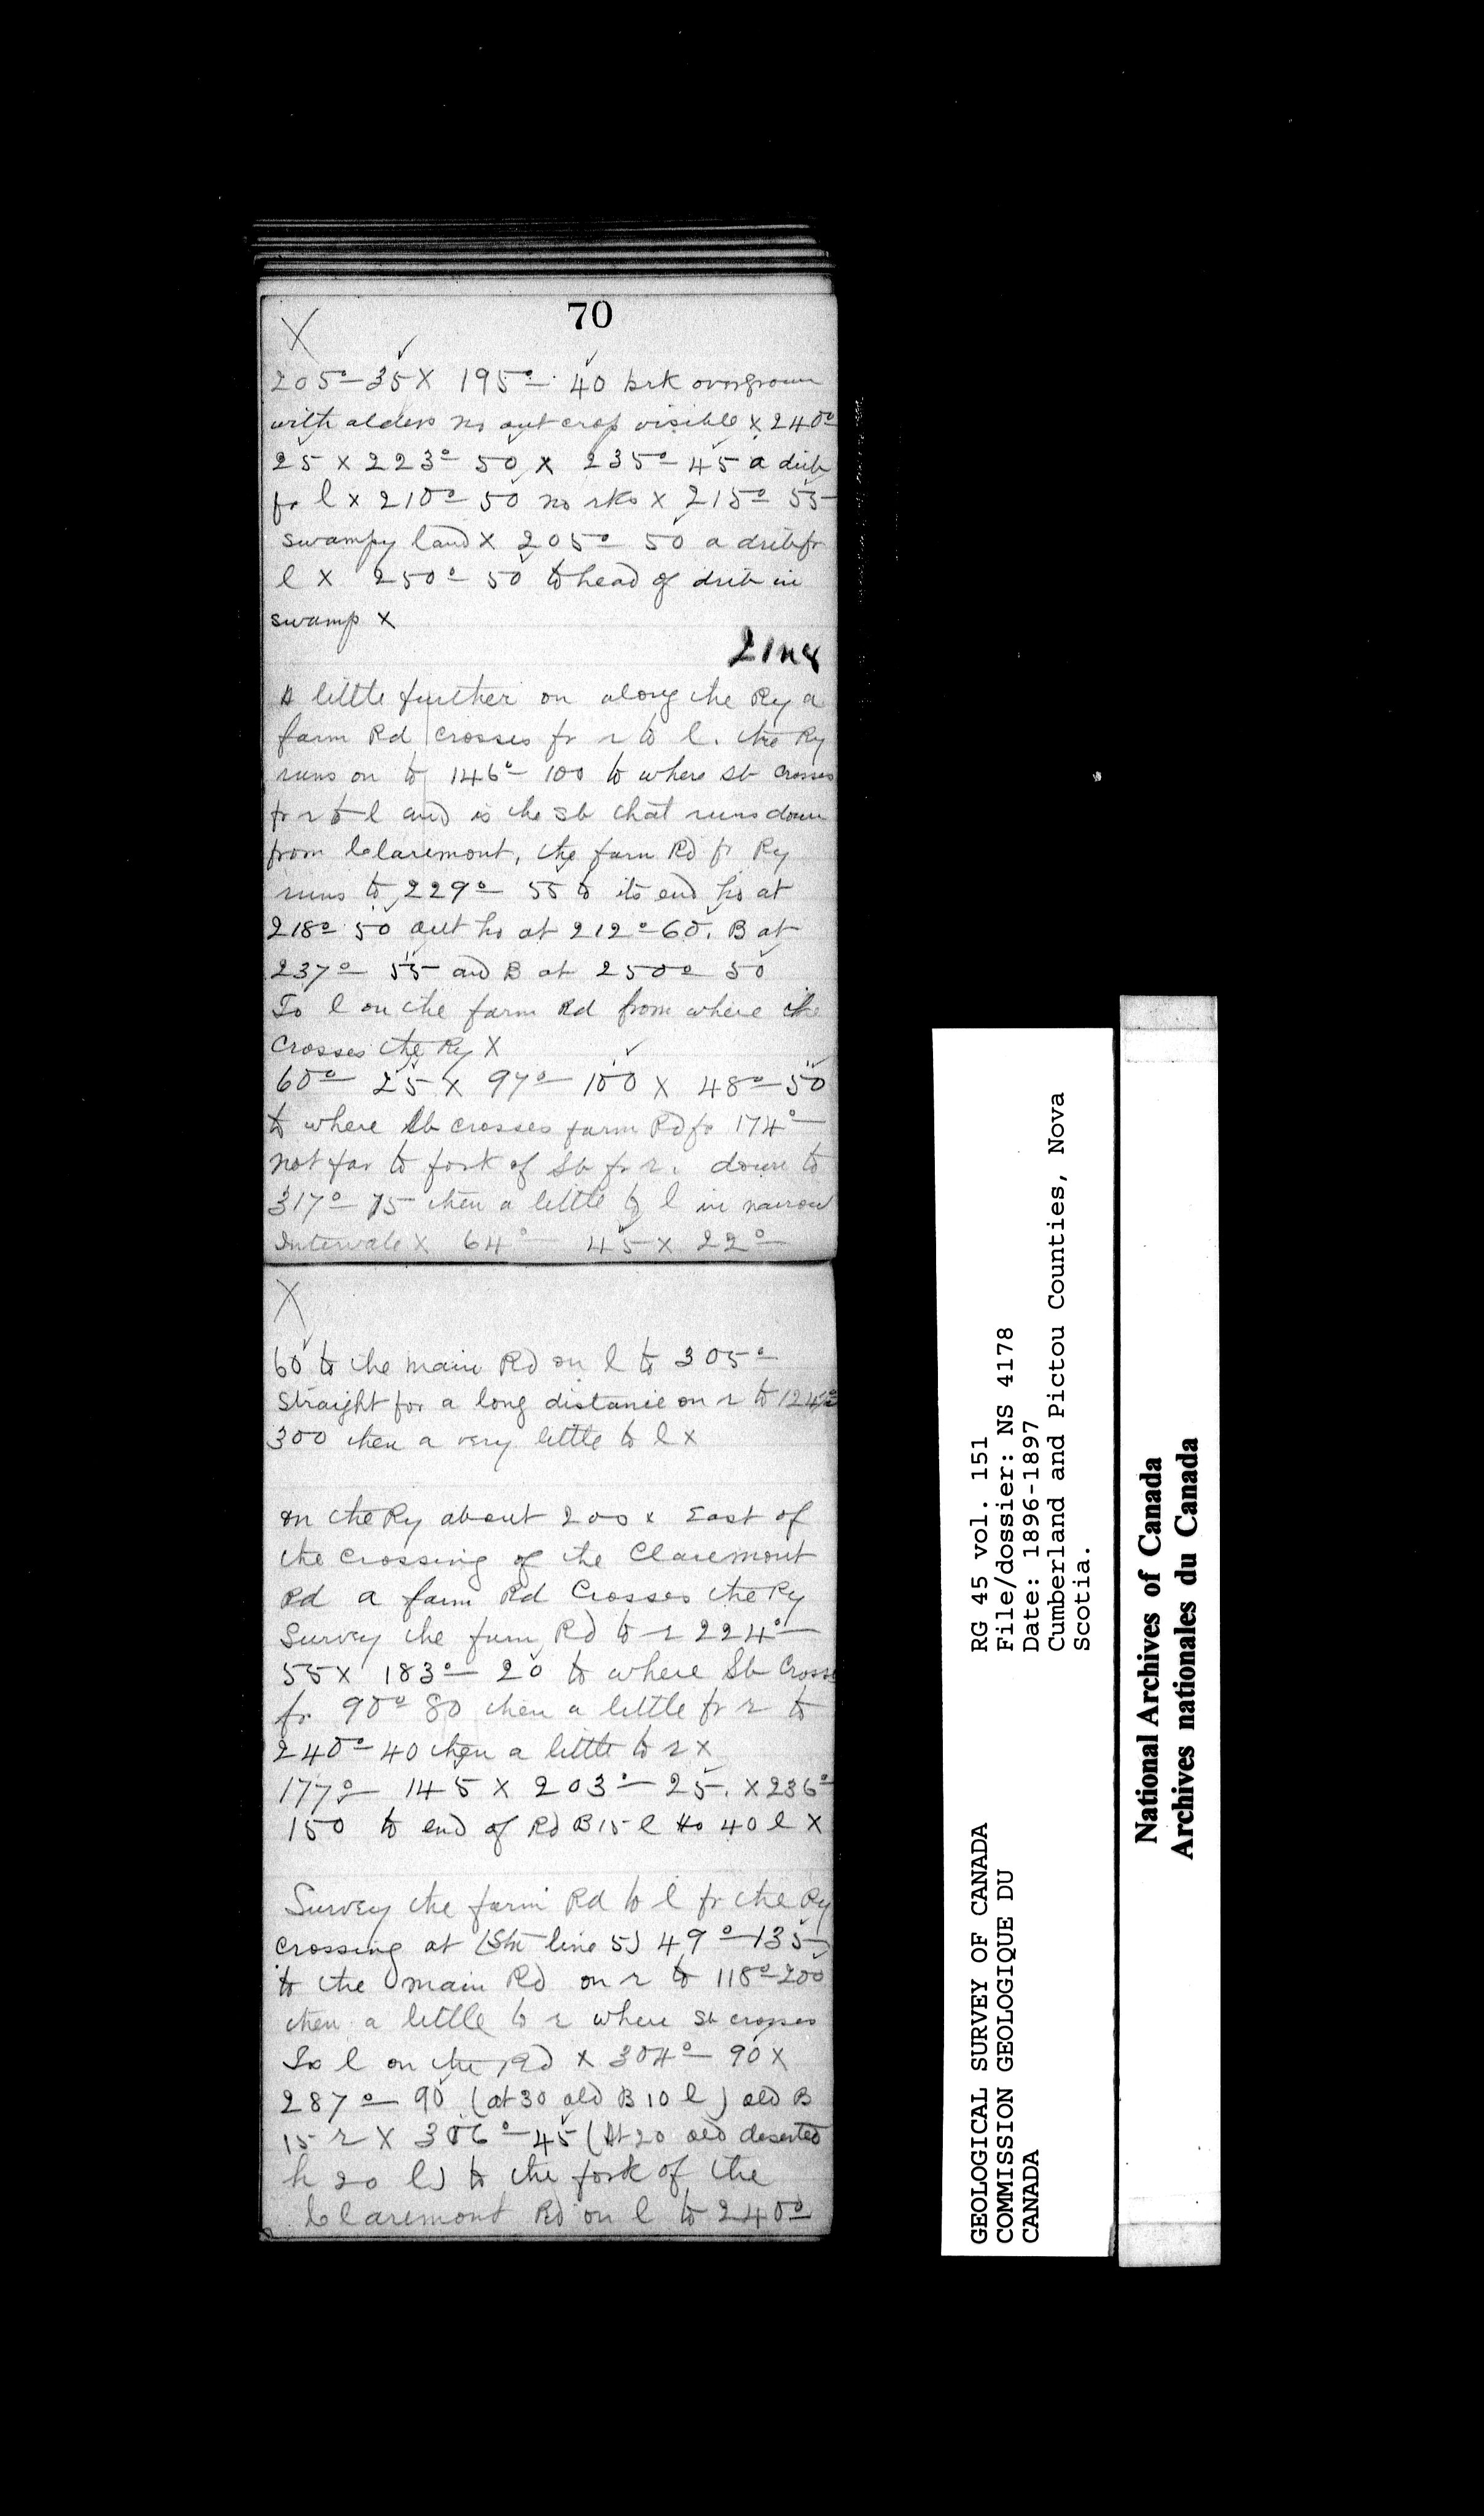 70
X
205°- 35 X 195°- 40 brk overgrown
with alders no out crop visible x 240°
25 x 223°- 50 x 235°- 45 a drib
fr l x 210°- 50 no rks x 215°- 55
swampy land X 205°- 50 a drib fr
l X 250°- 50 to head of drib in
swamp X
A little further on along the Ry a
farm Rd crosses fr r to l. the Ry
runs on to 146°- 100 to where Sb crosses
fr r to l and is the Sb that runs down
from Claremont, the farm Rd fr Ry
runs to 229°- 55 to its end ho at
218°- 50 out ho at 212°- 60. B at
237°- 55 and B at 250°- 50
To l on the farm Rd from where the
crosses the Ry X
60°- 25 x 97°- 100 x 48°- 50
to where Sb crosses farm Rd fr 174°-
not far to fork of Sb fr r. down to
317°- 75 then a little to l in narrow
Intervale X 64°- 45 x 22°-
X
60 to the main Rd on l to 305°-
straight for a long distance on r to 124°
300 then a very little to l x
on the Ry about 200 x East of
the crossing of the Claremont
Rd a farm Rd Crosses the Ry
Survey the farm Rd to r 224°-
55 x 183°- 20 to where Sb Cross
fr 90°- 80 then a little fr r to
240°- 40 then a little to r X
177°- 145 X 203°- 25. X 236°-
150 to end of Rd B 15 l Ho 40 l X
Survey the farm Rd to l fr the Ry
crossing at (Stn line 5) 49°- 135
to the main Rd on r to 118°- 200
then a little to r where Sb crosses
To l on the Rd x 304°- 90 X
287°- 90 (at 30 old B 10 l) old B
15 r X 306°- 45 (At 20 old deserted
h 20 l) to the fork of the
Claremont Rd on l to 240°-
GEOLOGICAL SURVEY OF CANADA
COMMISSION GEOLOGIQUE DU
CANADA
RG 45 vol. 151
File/dossier: NS 4178
Date: 1896-1897
Cumberland and Pictou Counties, Nova
Scotia.
National Archives of Canada
Archives nationales du Canada